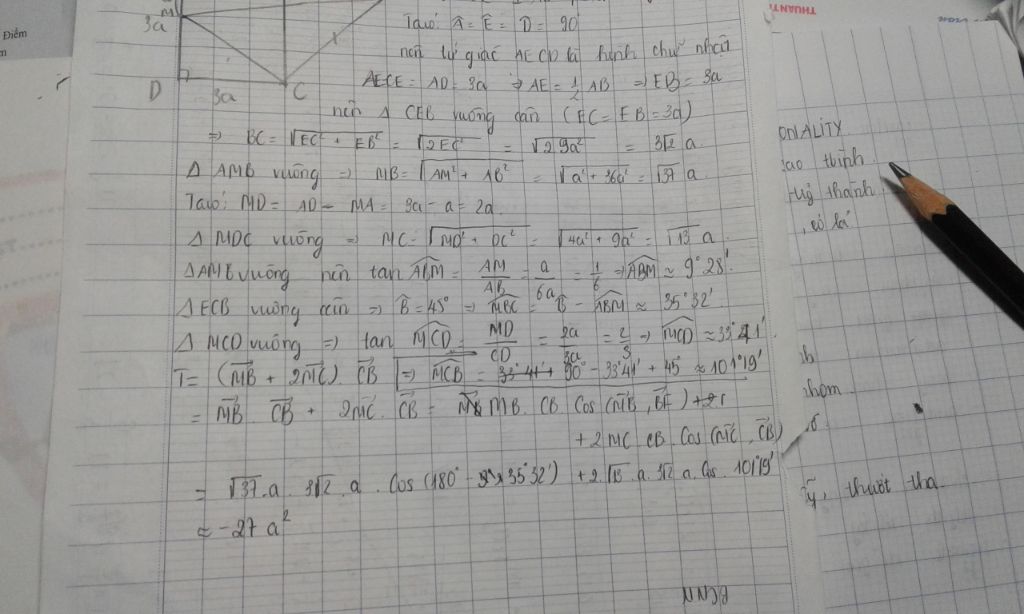 M
3a
D
3a
C
Ta có Â = Ê = D̂ = 90°
nên tứ giác AECD là hình chữ nhật
AECE = AD = 3a ⇒ AE = 1/2 AB ⇒ EB = 3a
nên Δ CEB vuông cân (EC = EB = 3a)
⇒ BC = √(EC² + EB²) = √(2EC²) = √(2.9a²) = 3√2 a.
Δ AMB vuông ⇒ MB = √(AM² + AB²) = √(a² + 36a²) = √37 a.
Ta có: MD = AD - MA = 3a - a = 2a.
Δ MDC vuông ⇒ MC = √(MD² + DC²) = √(4a² + 9a²) = √13 a.
ΔAMB vuông nên tan ABM = AM/AB = a/6a = 1/6 ⇒ ABM ≈ 9°28'.
Δ ECB vuông cân ⇒ B̂ = 45° ⇒ MBC = B̂ - ABM ≈ 35°32'
Δ MCD vuông ⇒ tan MCD = MD/CD = 2a/3a = 2/3 ⇒ MCD ≈ 33°41'
T = (MB + 2MC). CB ⇒ MCB = 90° - 33°41' + 45° ≈ 101°19'
= MB. CB + 2MC. CB = MB. CB Cos (MB, BE) +
+ 2 MC CB Cos (MC, CB)
= √37.a. 3√2.a. Cos (180° - 35°32') + 2.√13.a. 3√2.a. Cos 101°19'
≈ -27 a²
Điểm
THUANTI
ONALITY
thình
thanh
có lá
thướt tha